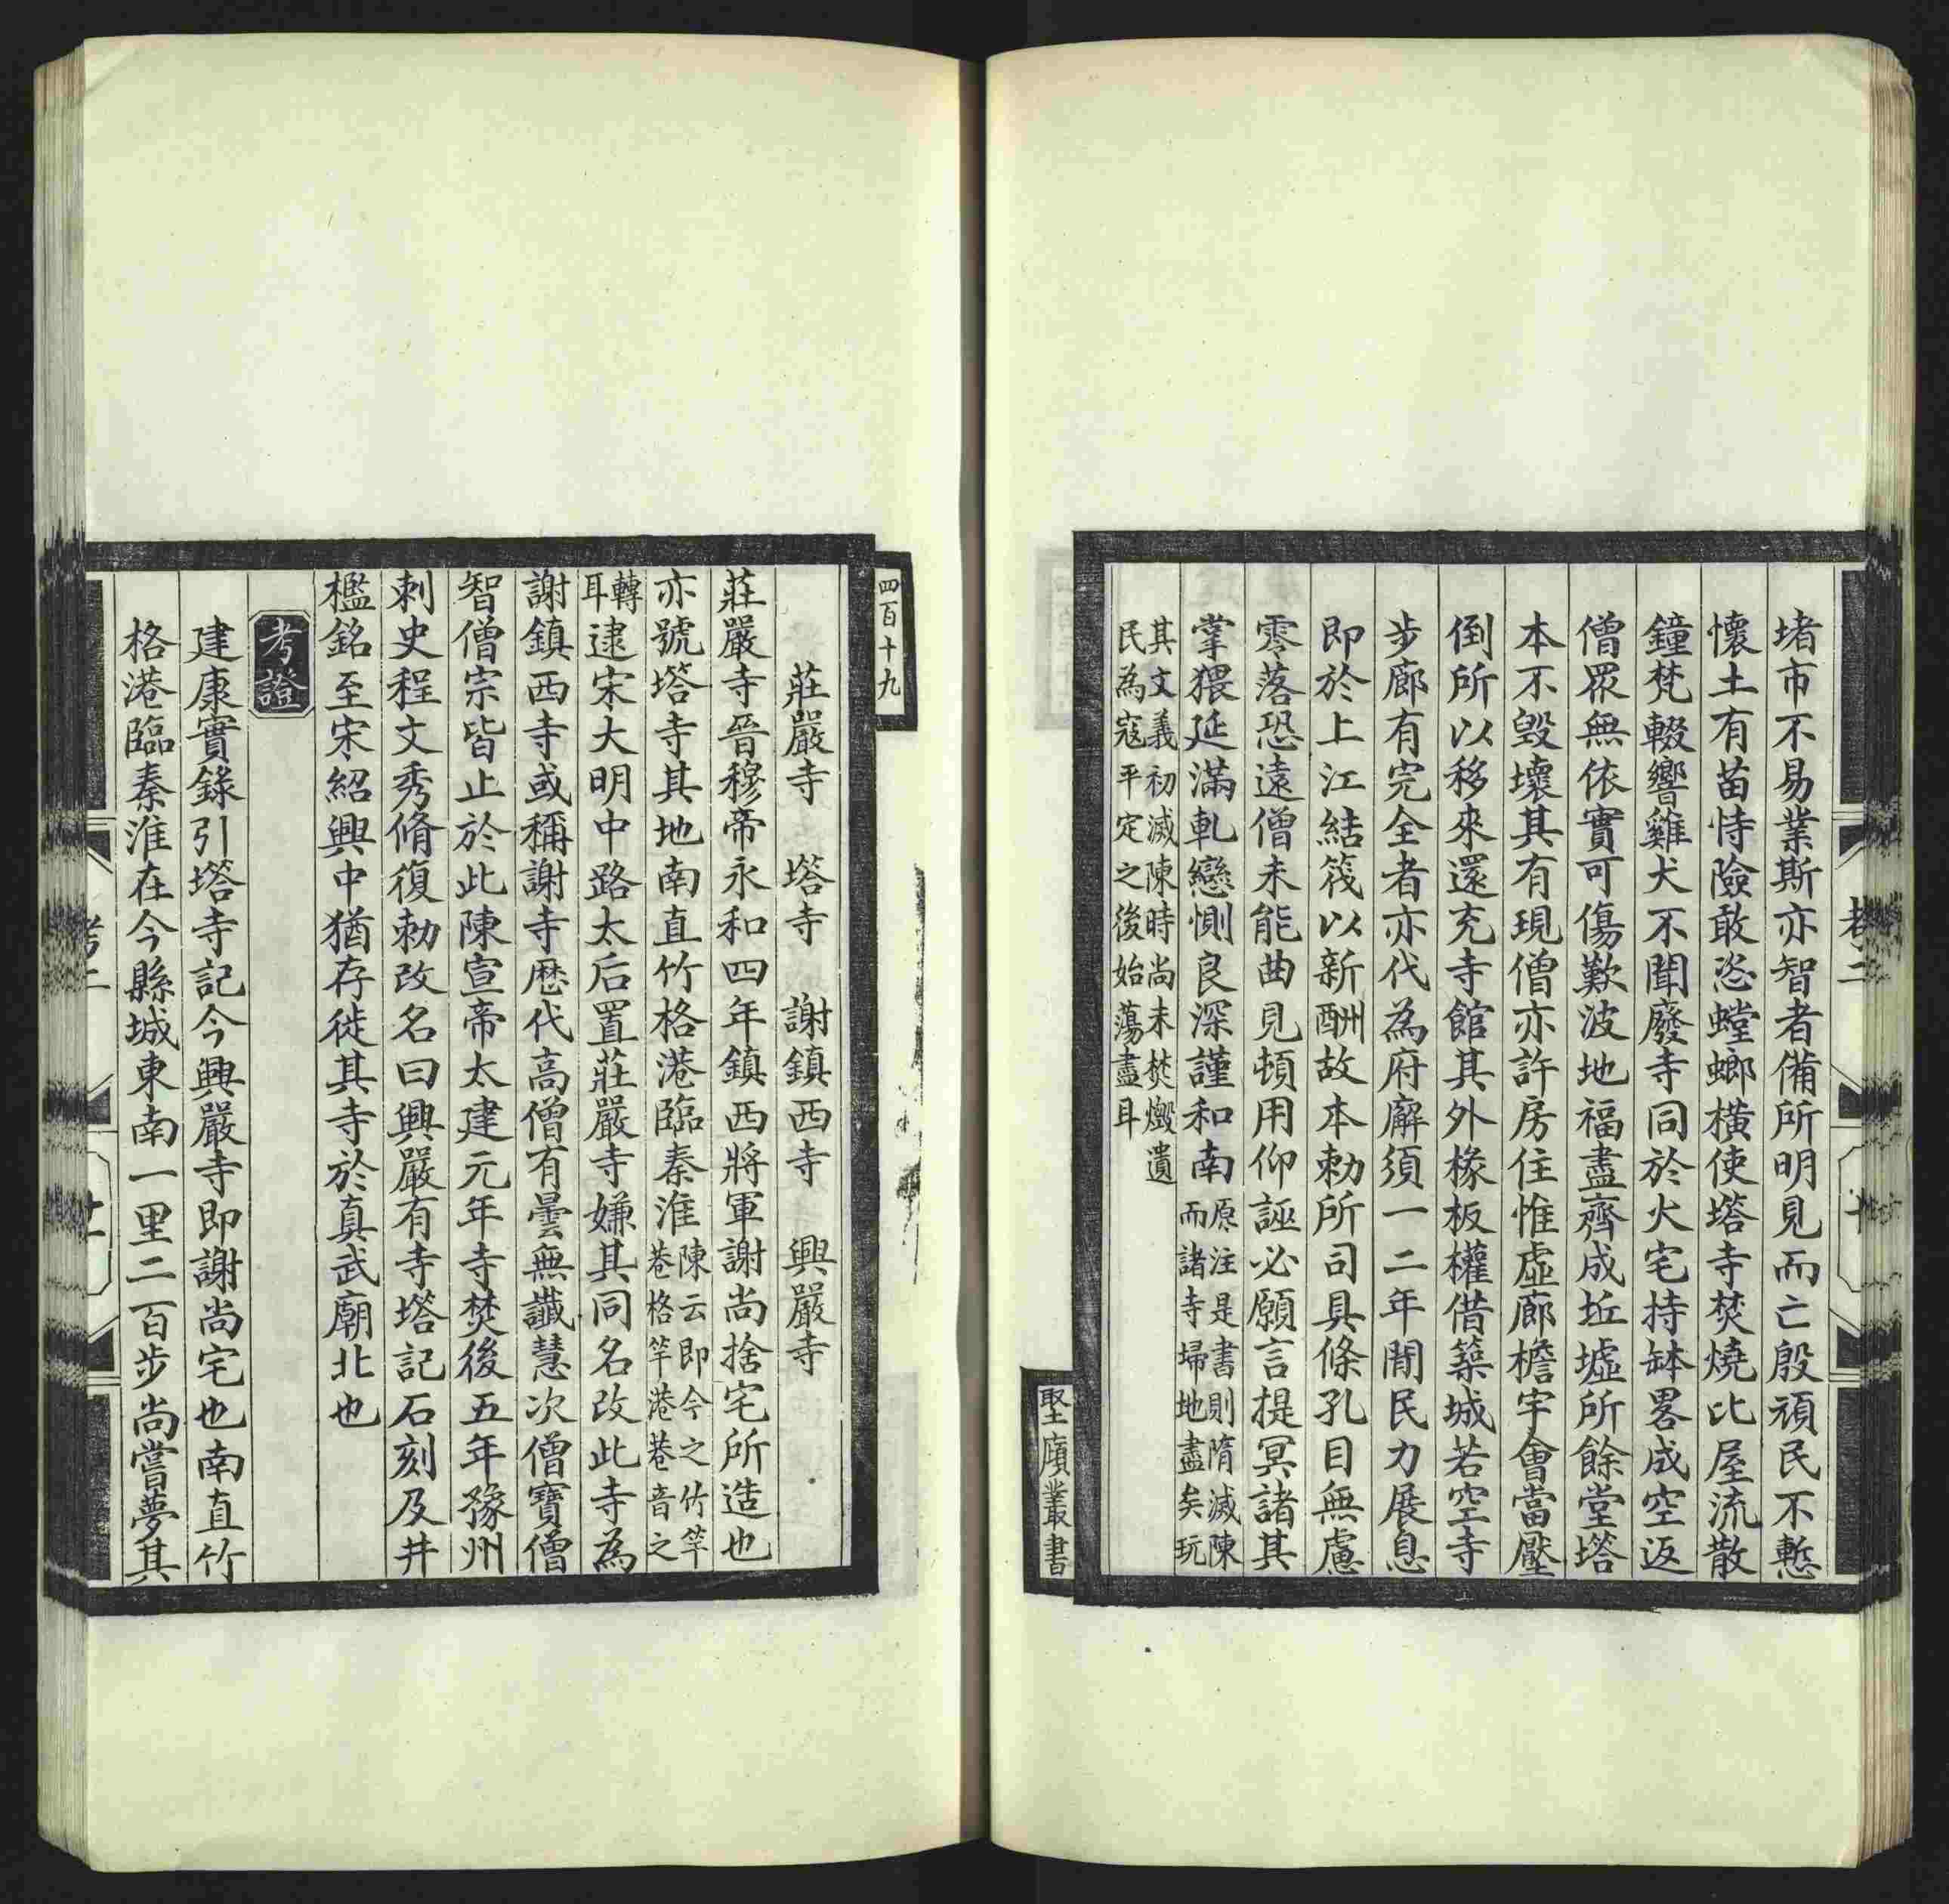 堵市不易業斯亦智者備所明見而亡殷頑民不慙
懷土有苗恃險敢恣螳螂橫使塔寺焚燒比屋流散
鐘梵輟響雞犬不聞廢寺同於火宅持缽畧成空返
僧眾無依實可傷歎波地福盡齊成丘墟所餘堂塔
本不毀壞其有現僧亦許房住惟虛廊檐宇會當壓
倒所以移來還充寺館其外椽板權借築城若空寺
步廊有完全者亦代為府廨須一二年閒民力展息
即於上江結筏以新酬故本勅所司具條孔目無慮
零落恐遠僧未能曲見頓用仰誣必願言提冥諸其
掌猥延滿軋戀惻良深謹和南原注是書則隋滅陳
而諸寺埽地盡矣玩
其文義初滅陳時尚未焚燬遺
民為寇平定之後始蕩盡耳
考二
十
堅廎叢書
四百十九
莊嚴寺 塔寺 謝鎮西寺 興嚴寺
莊嚴寺晉穆帝永和四年鎮西將軍謝尚捨宅所造也
亦號塔寺其地南直竹格港臨秦淮陳云即今之竹竿
巷格竿港巷音之
轉
耳逮宋大明中路太后置莊嚴寺嫌其同名改此寺為
謝鎮西寺或稱謝寺歷代高僧有曇無讖慧次僧寶僧
智僧宗皆止於此陳宣帝太建元年寺焚後五年豫州
刺史程文秀脩復勅改名曰興嚴有寺塔記石刻及井
檻銘至宋紹興中猶存徙其寺於真武廟北也
考證
建康實錄引塔寺記今興嚴寺即謝尚宅也南直竹
格港臨秦淮在今縣城東南一里二百步尚嘗夢其
考二